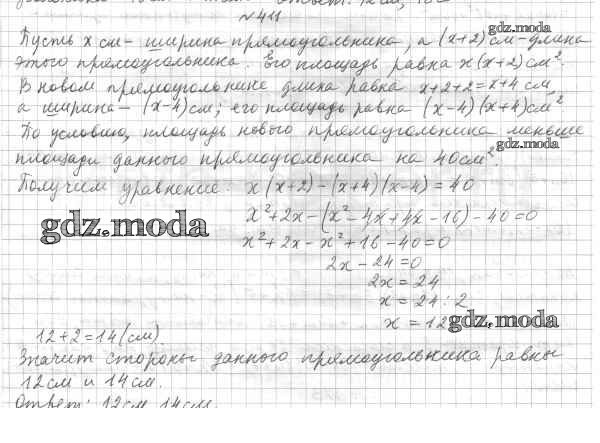 №411
gdz.moda
Пусть x см - ширина прямоугольника, а (x+2) см - длина
этого прямоугольника. Его площадь равна x(x+2) см².
В новом прямоугольнике длина равна x+2+2=x+4 см,
а ширина - (x-4) см; его площадь равна (x-4)(x+4) см²
По условию, площадь нового прямоугольника меньше
gdz.moda
площади данного прямоугольника на 40 см².
Получим уравнение: x(x+2)-(x+4)(x-4)=40
x²+2x-(x²-4x+4x-16)-40=0
gdz.moda
x²+2x-x²+16-40=0
2x-24=0
2x=24
x=24:2
x=12
gdz.moda
12+2=14(см).
Значит стороны данного прямоугольника равны
12 см и 14 см.
Ответ: 12 см, 14 см.